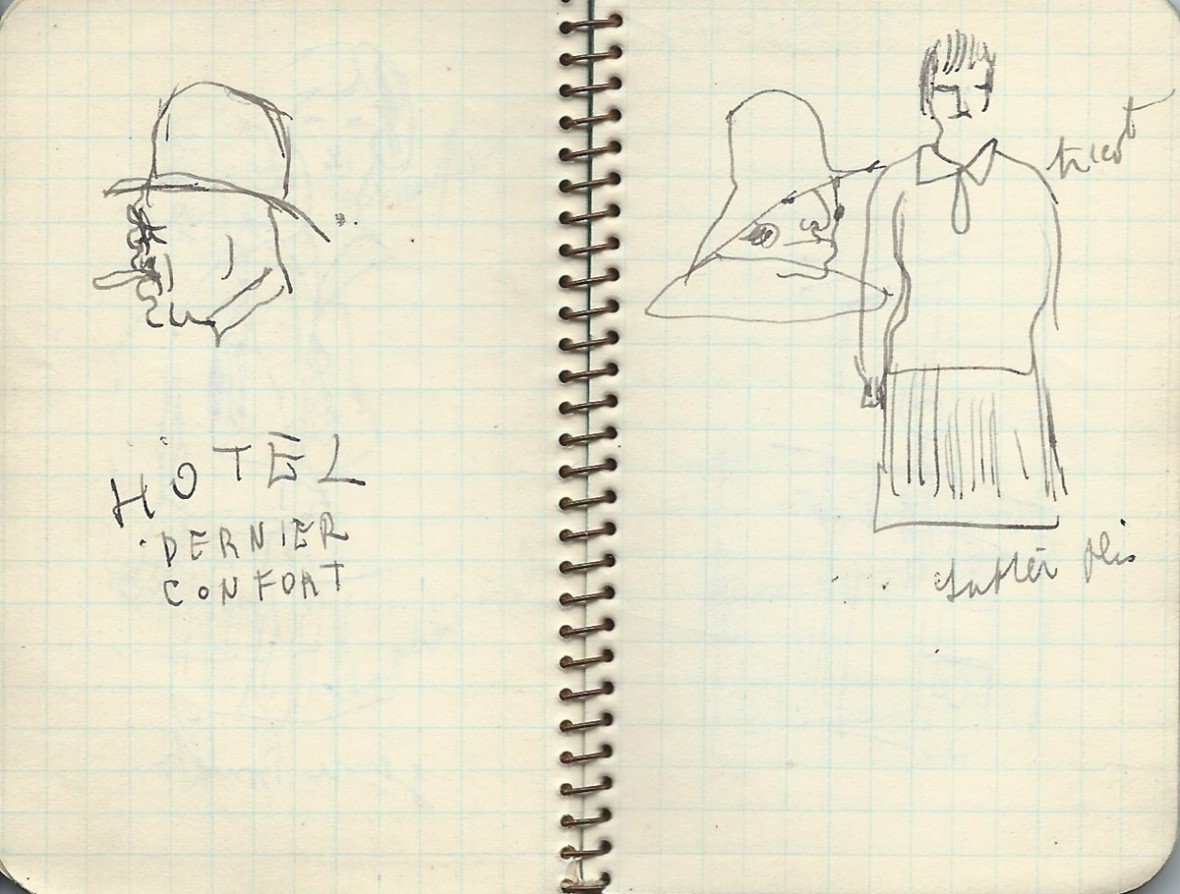 HOTEL
DERNIER
CONFORT
tricot
plis